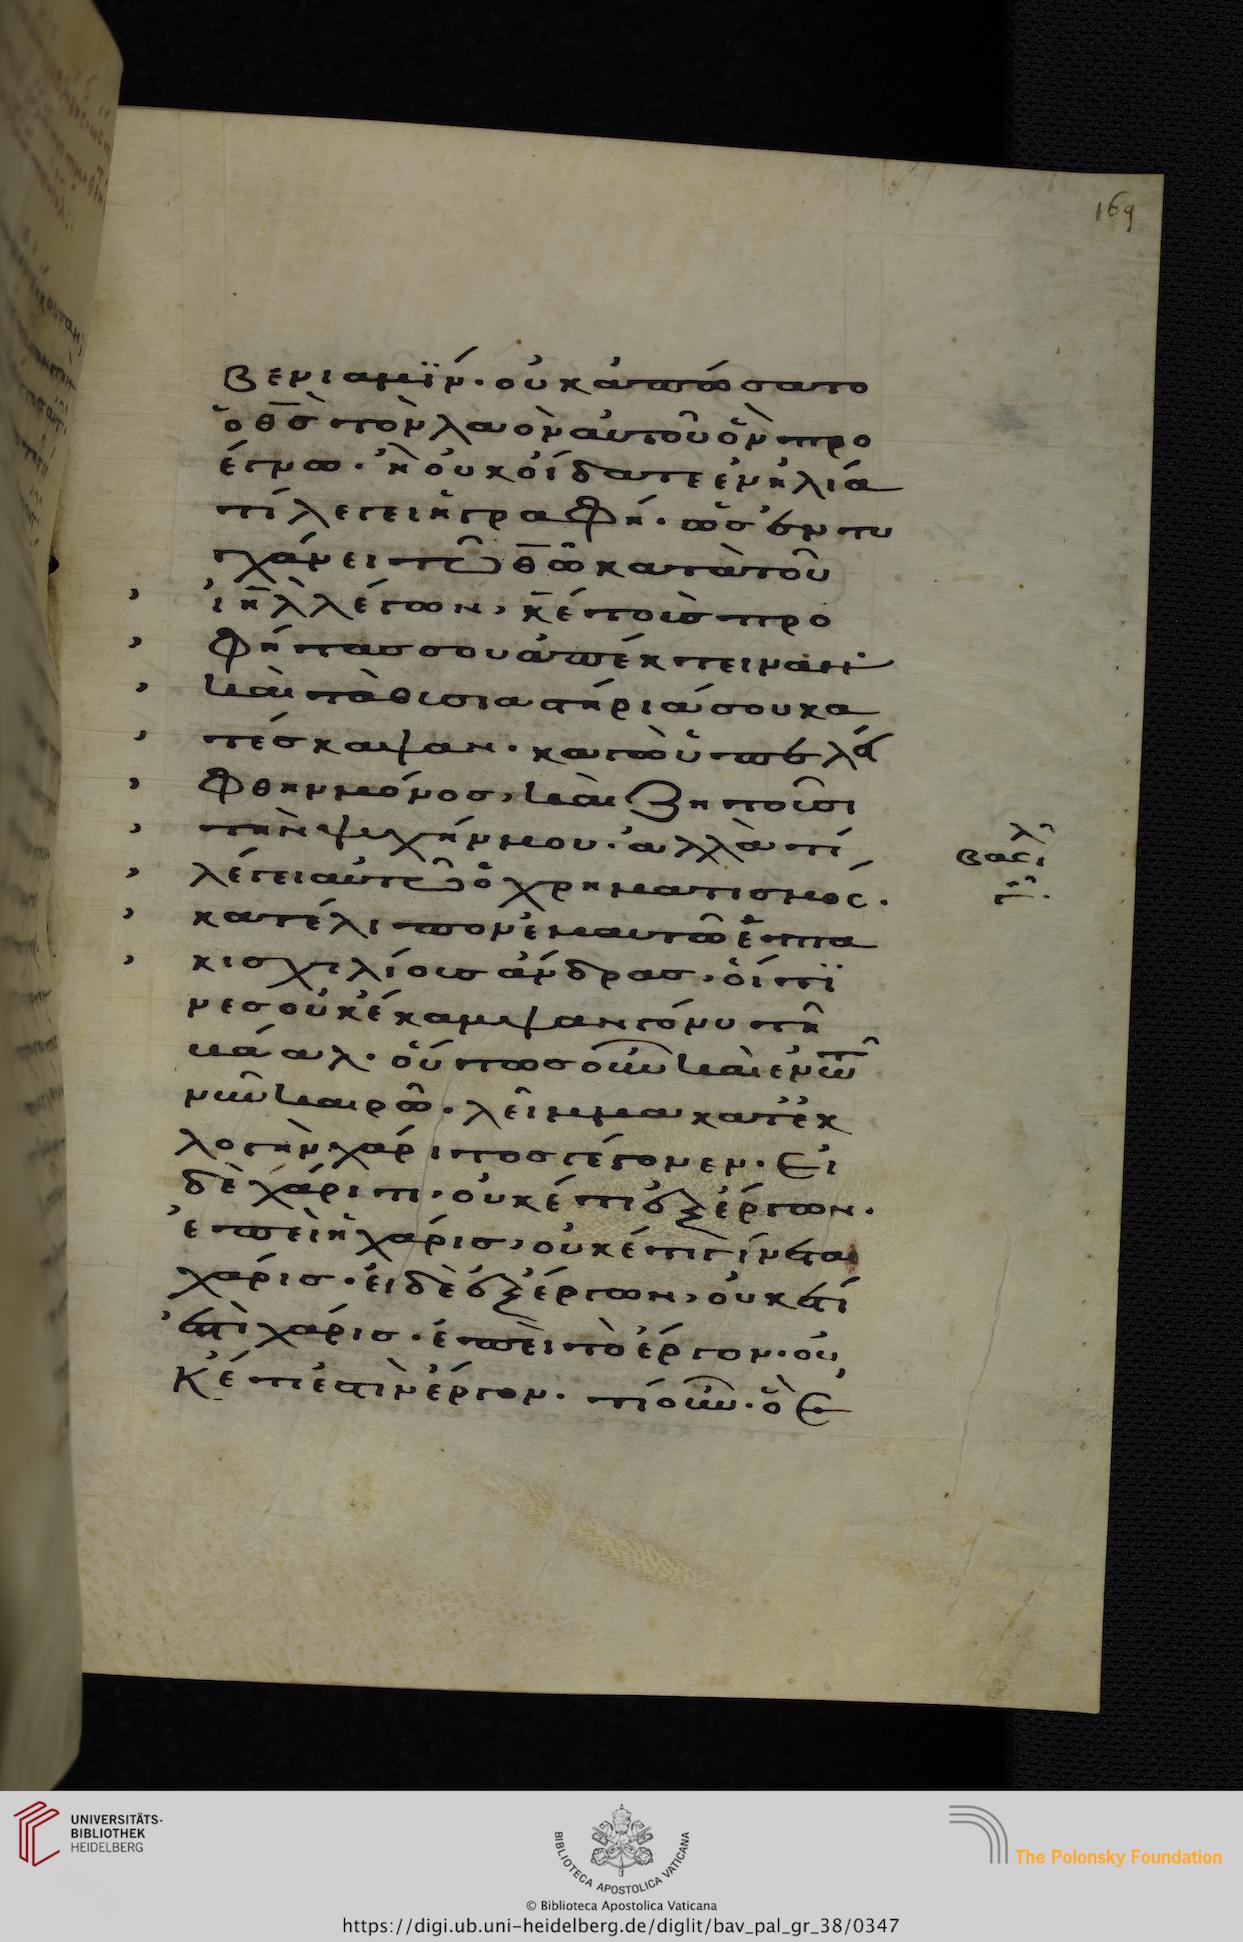 169
βενιαμΐν. οὐκ ἀπώσατο
ὁ θ̅ς̅ τὸν λαὸν αὐτοῦ ὃν προ
έγνω. ἢ οὐκ οἴδατε ἐν ἠλία
τί λέγει ἡ γραφή. ὡς ἐντυ
γχάνει τῶ θ̅ω̅ κατὰ τοῦ
ἰη̅λ̅ λέγων, κ̅ε̅ τοὺς προ
φήτας σου ἀπέκτειναν
καὶ τὰ θυσιαστήριά σου κα
τέσκαψαν. κἀγὼ ὑπελεί
φθην μόνος, καὶ ζητοῦσι
τὴν ψυχήν μου. ἀλλὰ τί
λέγει αὐτῶ ὁ χρηματισμός.
κατέλιπον ἐμαυτῶ ἑπτα
κισχιλίους ἄνδρας, οἵ τι
νες οὐκ ἔκαμψαν γόνυ τῆ
βάαλ. οὕτως οὖν καὶ ἐν τῶ
νῦν καιρῶ. λεῖμμα κατ ἐκ
λογὴν χάριτος γέγονεν. Εἰ
δὲ χάριτι, οὐκέτι ἐξ ἔργων.
ἐπεὶ ἡ χάρις, οὐκέτι γίνεται
χάρις. εἰ δὲ ἐξ ἔργων, οὐκέτι
ἐστὶ χάρις. ἐπεὶ τὸ ἔργον. οὐ
κέτι ἐστὶν ἔργον. τί οὖν. ὃ ἐ
βασιλ
γ.
UNIVERSITÄTS-
BIBLIOTHEK
HEIDELBERG
BIBLIOTECA APOSTOLICA VATICANA
The Polonsky Foundation
© Biblioteca Apostolica Vaticana
https://digi.ub.uni-heidelberg.de/diglit/bav_pal_gr_38/0347